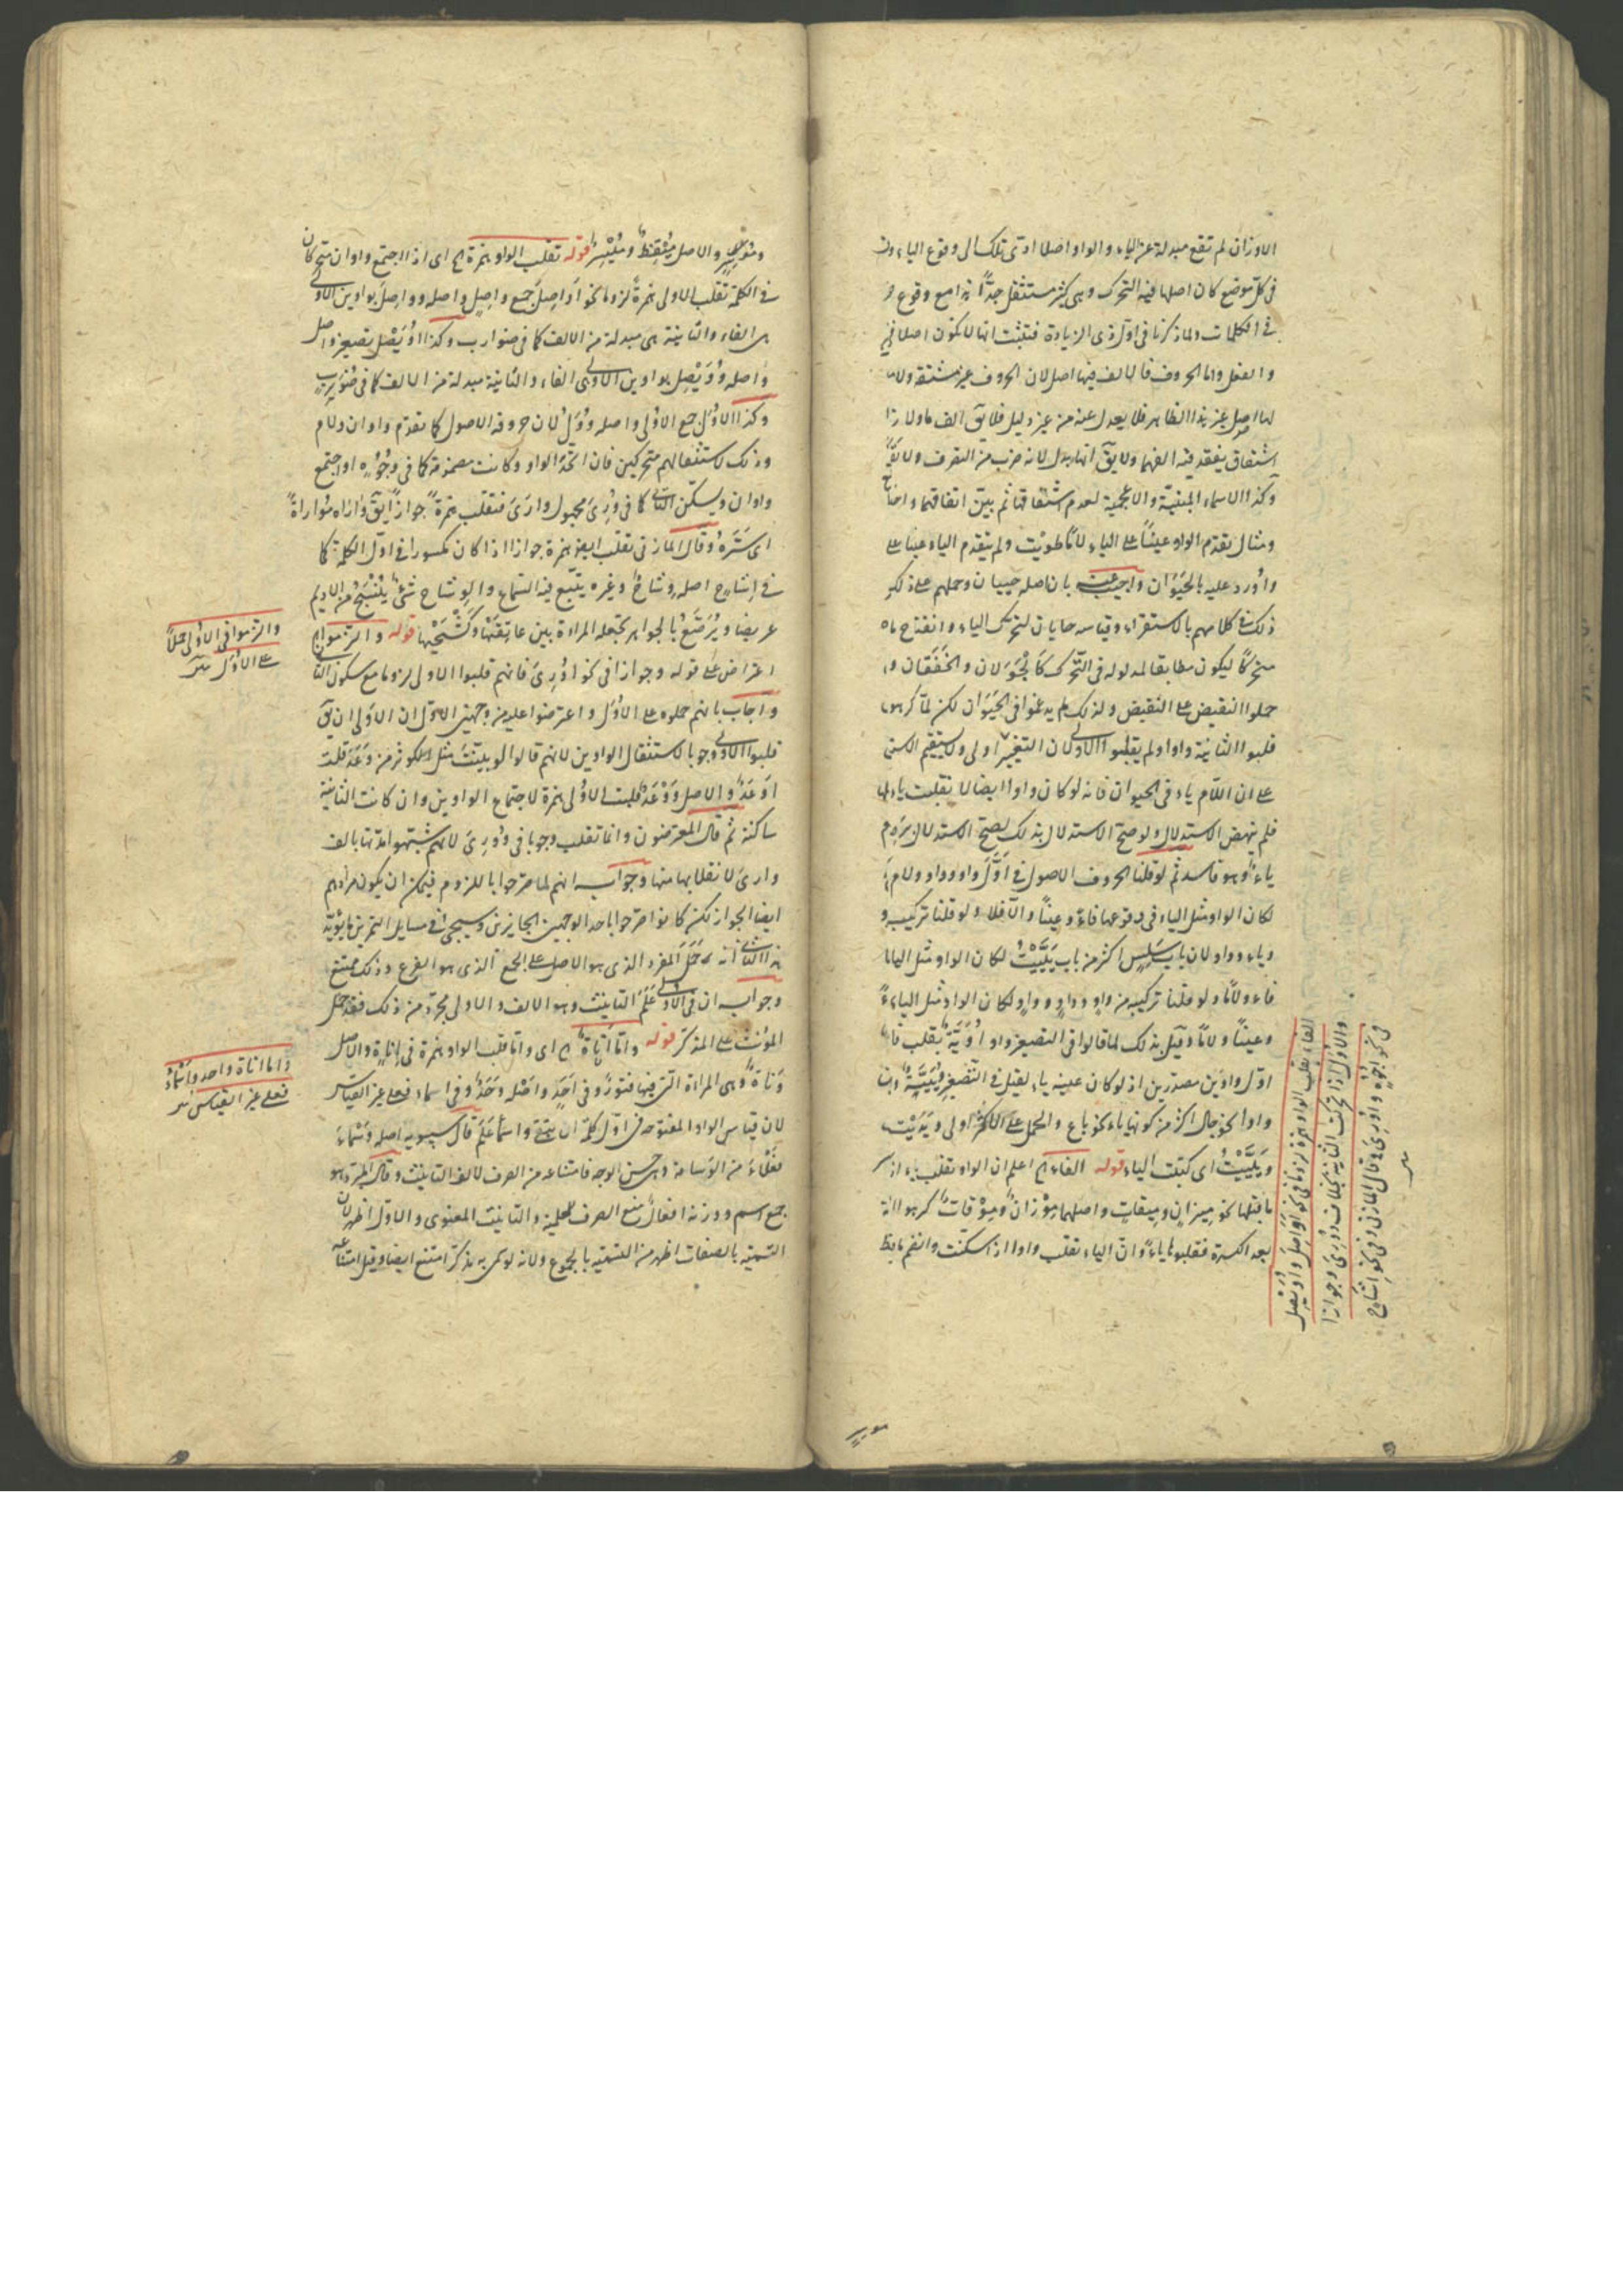 الاوزان لم تقع مبدلة عن الياء والواو اصلا ادى تلك الى وقوع الياء
فى كل موضع كان اصلها فيه التحرك وهى كثير مستثقل جدّا مع وقوع
فى الكلمات ولما ذكرنا فى اول ذى الزيادة فتثبت انها لا تكون اصلا فى
والفعل واما الحروف فالالف فيها اصل لان الحروف غير مشتقة ولا
لها اصل غير هذا الظاهر فلا يعدل عنه من غير دليل فلا يق الف ما ولا زا
اشتقاق يفقد فيه الفهما ولا يق انها بدل لانه ضرب من التصرف ولا
وكذا الاسماء المبنيّة والاعجمية لعدم اشتقاقها ثم بيّن اتفاقهما و
ومثال تقدّم الواو عيناً على الياء لامًا طويت ولم يتقدم الياء عينا على
واُورد عليه بالحَيَوَان واجيب بان اصله حييان وحملهم على ذلك
ذلك فى كلامهم بالاستقراء وقياسه حايان لتحرك الياء وانفتاح ما
متحركًا ليكون مطابقا لمدلوله فى التحرك كَالجَوَلان والخَفَقان و
حملوا النقيض على النقيض ولذلك لم يدغموا فى الحَيَوَان لكن لمّا كرهوا
قلبوا الثانية واوا ولم يقلبوا الاولى لان التغيير اولى ولا يستقيم
على ان اللّام ياء فى الحيوان فانه لو كان واوا ايضا لا نقلبت ياء
فلم ينهض الاستدلال ولو صحّ الاستدلال بذلك لصح الاستدلال
ياءٌ وهو فاسد ثم لو قلنا الحروف الاصول فى اَوَّل واو وواو ولام
لكان الواو مثل الياء فى وقوعها فاءً وعينًا والّا فلا ولو قلنا تركيب و
وياء وواو لان باب سَلِسٍ اكثر من باب يَيَّيْتُ لكان الواو مثل الياء
فاء ولامًا ولو قلنا تركيبه من واوٍ وواوٍ وواوٍ لكان الواو مثل الياء
وعيناً ولامًا وقيل بذلك لما قالوا فى التصغير واو اُوَيَّة بقلب
اوّل واوَين مصدرين اذ لو كان عينه ياء لقيل فى التصغير وُيَيَّةٌ
واوا نحو جال اكثر من كونها ياء نحو باع والحمل على الاكثر اولى ويَدَيْت
ويَيَّيْتُ اى كتبت الياء قوله الفاء الخ اعلم ان الواو تقلب ياء
ما قبلها نحو مِيزانٍ ومِيقاتٍ واصلهما مِوْزانٌ ومِوْقاتٌ كرهوا
بعد الكسرة فقلبوها ياءً وان الياء تقلب واوا اذا سكنت وانضم ما
الفاء تقلب الواو همزة لزوما فى نحو اَوَاصِلَ واُوَيْصِل
والاُوَل اذا تحركت الثانية بخلاف وُورِىَ وجوازا
فى نحو اُجُوهٍ واُورِىَ وقال المازنى وفى نحو اِشَاحٍ
ومُوسِر والاصل مُيْقِظٌ ومُيْسِر قوله تقلب الواو همزة الخ اى اذا اجتمع واوان متحركان
فى الكلمة تقلب الاولى همزةً لزوما نحو اَوَاصِلَ جمع واصِلٍ واصله وواصِل بواوين الاولى
هى الفاء والثانية هى مبدلة من الالف كما فى ضوارب وكذا اُوَيْصِل تصغير واصل
واصله وُوَيْصِل بواوين الاولى الفاء والثانية مبدلة من الالف كما فى ضُوَيرِبٍ
وكذا الاُوَل جمع الاُولى واصله وُوَل لان حروفه الاصول كما تقدّم واوان ولام
وذلك لاستثقالهم متحركين فان اتّحد الواو وكانت مضمومة كما فى وُجُوْه او اجتمع
واوان ويسكن الثانى كما فى وُرِىَ مجهول وارَىَ فتقلب همزةً جوازًا يق وَارَاه مُوَاراةً
اى سَتَرَهُ وقال المازنى تقلب ايضا همزة جوازا اذا كان مكسورا فى اول الكلمة كما
فى اِشاحٍ اصله وِشاحٌ وغيره يتّبع فيه السّماع والوِشاح شئٌ يُنْسَجُ من الاديم
عريضا ويُرَصَّعُ بالجواهر تجعله المراة بين عاتقها وكَشْحَيْها قوله والتزموا الخ
اعتراض على قوله وجوازا فى نحو اُوْرِىَ فانهم قلبوا الاولى لزوما مع سكون الثانى
واجاب بانهم حملوه على الاُوَل واعترضوا عليه من وجهين الاوّل ان الاَوْلى ان يق
قلبوا الاولى وجوبا لاستثقال الواوين لانهم قالوا لو بنيت مثل كوثر من وَعَدَ قلت
اَوْعَدٌ والاصل وَوْعَدٌ قلبت الاُولى همزة لاجتماع الواوين وان كانت الثانية
ساكنة ثم قال المعترضون وانما تقلب وجوبا فى وُوْرِىَ لانهم شبّهوا مدّتها بالف
وارىَ لانقلابها منها وجوابه انهم لما صرّحوا باللزوم فيمكن ان يكون مرادهم
ايضا الجواز لكن كانوا صرّحوا باحد الوجهين الجايزين وسيجئ فى مسايل التمرين ما يؤيّد
هذا الثانى انه حَمَلَ المفرد الذى هو الاصل على الجمع الذى هو الفرع وذلك ممتنع
وجوابه ان فى الاُولى عَلَمَ التانيث وهو الالف والاول مجرّد من ذلك فقد حمل
المؤنث على المذكّر قوله وامّا اَناةٌ الخ اى وامّا قلب الواو همزة فى اَناةٍ والاصل
وَناةٌ وهى المراة التى فيها فتورٌ وفى اَحَدٍ واصله وَحَدٌ وفى اسماء فعلى غير القياس
لان قياس الواو المفتوحة فى اوّل كلمة ان تبقى واسماءُ عَلَم قال سيبويه اصله وَسْماءُ
فَعْلاءُ من الوَسامة وهى حسن الوجه فامتناعه من الصرف لالف التانيث وقال المبرّد هو
جمع اسم ووزنه افعالٌ منع الصرف للعلمية والتانيث المعنوى والاوّل اظهر لان
التسمية بالصفات اظهر من التسمية بالجموع ولانه لو سمى به مذكّر امتنع ايضا وقيل امتناعه
والتزموا فى الاُولى حملاً
على الاُوَل
واما اناة واحد واَسْماءُ
فعلى غير القياس